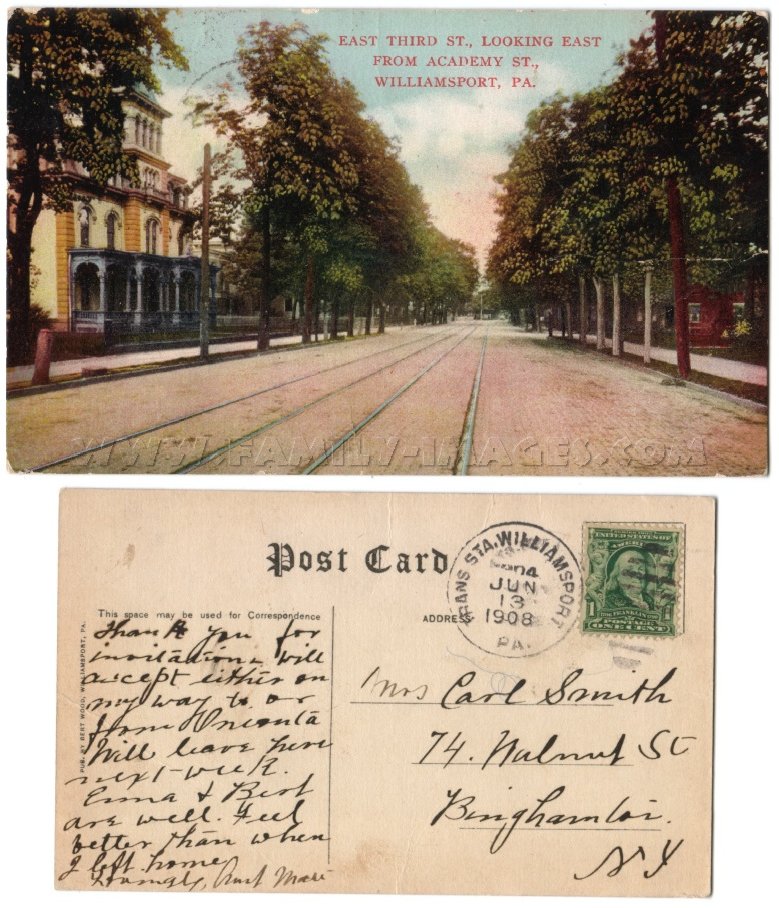 EAST THIRD ST., LOOKING EAST
FROM ACADEMY ST.,
WILLIAMSPORT, PA.
WWW.FAMILY-IMAGES.COM
Post Card
TRANS STA. WILLIAMSPORT
JUN
13
1908
PA.
UNITED STATES OF
AMERICA
FRANKLIN
1
POSTAGE
ONE CENT
This space may be used for Correspondence
ADDRESS
PUB. BY BERT WOOD, WILLIAMSPORT, PA.
Thank you for
invitation. Will
accept either on
my way to or
from Oneonta
Will leave here
next week.
& Bert
are well. Feel
better than when
I left home
Lovingly, Aunt
Mrs Carl Smith
74. Walnut St
Binghamton.
NY